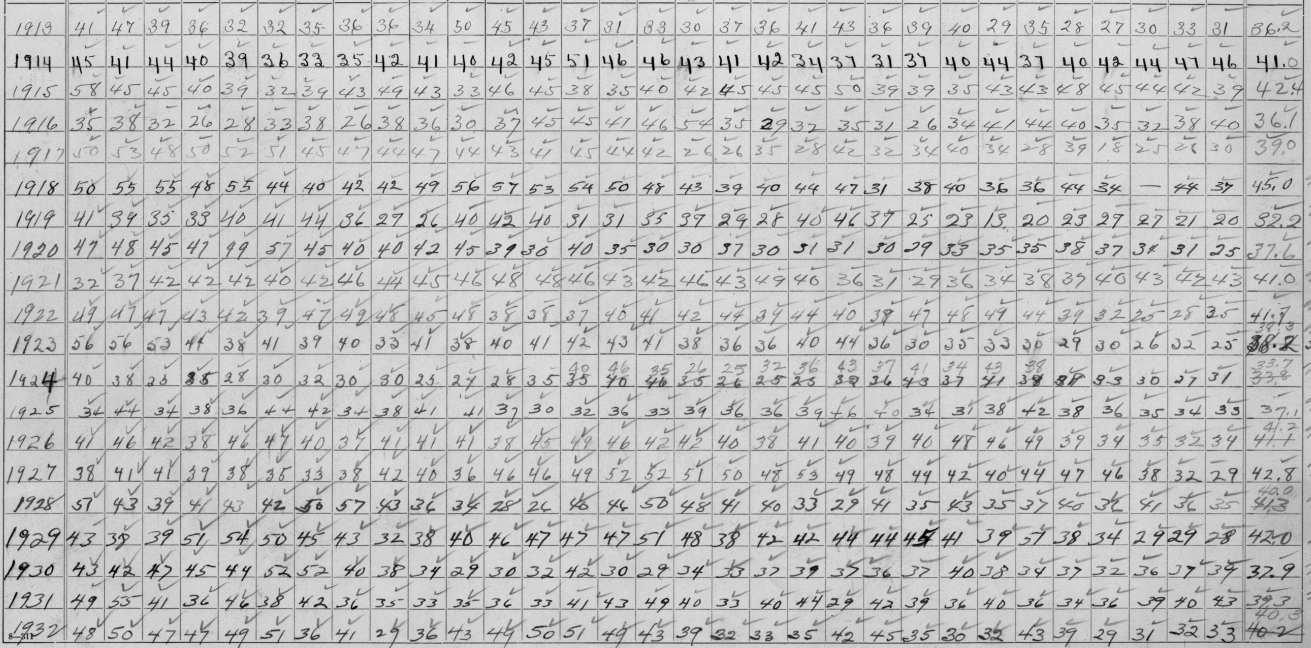 1913 41 47 39 36 32 32 35 36 36 34 50 45 43 37 31 33 30 37 36 41 43 36 39 40 29 35 28 27 30 33 31 36.2
1914 45 41 44 40 39 36 33 35 42 41 40 42 45 51 46 46 43 41 42 34 37 31 37 40 44 37 40 42 44 47 46 41.0
1915 58 45 45 40 39 32 39 43 49 43 33 46 45 38 35 40 42 45 45 45 50 39 39 35 43 43 48 45 44 42 39 42.4
1916 35 38 32 26 28 33 38 26 38 36 30 37 45 45 41 46 54 35 29 32 35 31 26 34 41 44 40 35 32 38 40 36.1
1917 50 53 48 50 52 51 45 47 44 47 44 43 41 45 44 42 26 26 35 28 42 32 34 40 34 28 39 18 25 26 30 39.0
1918 50 55 55 48 55 44 40 42 42 49 56 57 53 54 50 48 43 39 40 44 47 31 38 40 36 36 44 34 — 44 37 45.0
1919 41 39 35 33 40 41 44 36 27 26 40 42 40 31 31 35 37 29 28 40 46 37 25 23 13 20 23 27 27 21 20 32.2
1920 47 48 45 47 49 57 45 40 40 42 45 39 36 40 35 30 30 37 30 31 31 30 29 33 35 35 38 37 34 31 25 37.6
1921 32 37 42 42 42 40 42 46 44 45 46 48 48 46 43 42 46 43 49 40 36 31 29 36 34 38 37 40 43 42 43 41.0
1922 49 47 47 43 42 39 47 49 48 45 48 38 38 37 40 41 42 44 39 44 40 38 47 48 49 44 39 32 25 28 35
1923 56 56 53 44 38 41 39 40 33 41 38 40 41 42 43 41 38 36 36 40 44 36 30 35 33 30 29 30 26 32 25 38.2
40 46 35 26 25 32 36 43 37 41 34 43 38 33.7
1924 40 38 23 35 28 30 32 30 30 25 27 28 35 35 40 46 35 26 25 23 32 26 43 37 41 39 37 33 30 27 31 33.8
1925 34 44 34 38 36 44 42 34 38 41 41 37 30 32 36 33 39 36 36 39 46 40 34 31 38 42 38 36 35 34 33 37.1
41.2
1926 41 46 42 38 46 47 40 37 41 41 41 38 45 49 46 42 42 40 38 41 40 39 40 48 46 49 39 34 35 32 34 41.1
1927 38 41 41 39 38 35 33 38 42 40 36 46 46 49 52 52 51 50 48 53 49 48 44 42 40 44 47 46 38 32 29 42.8
40.0
1928 51 43 39 41 43 42 50 57 43 36 34 28 26 40 46 50 48 41 40 33 29 41 35 43 35 37 40 36 41 36 35
1929 43 38 39 51 54 50 45 43 32 38 40 46 47 47 47 51 48 38 42 42 44 44 45 41 39 51 38 34 29 29 28 42.0
1930 43 42 47 45 44 52 52 40 38 34 29 30 32 42 30 29 34 33 37 39 37 36 37 40 38 34 37 32 36 37 39 37.9
1931 49 55 41 36 46 38 42 36 35 33 35 36 33 41 43 49 40 33 40 44 29 42 39 36 40 36 34 36 39 40 43 39.3
40.3
1932 48 50 47 47 49 51 36 41 29 36 43 49 50 51 49 43 39 32 33 35 42 45 35 30 32 43 39 29 31 32 33 40.2